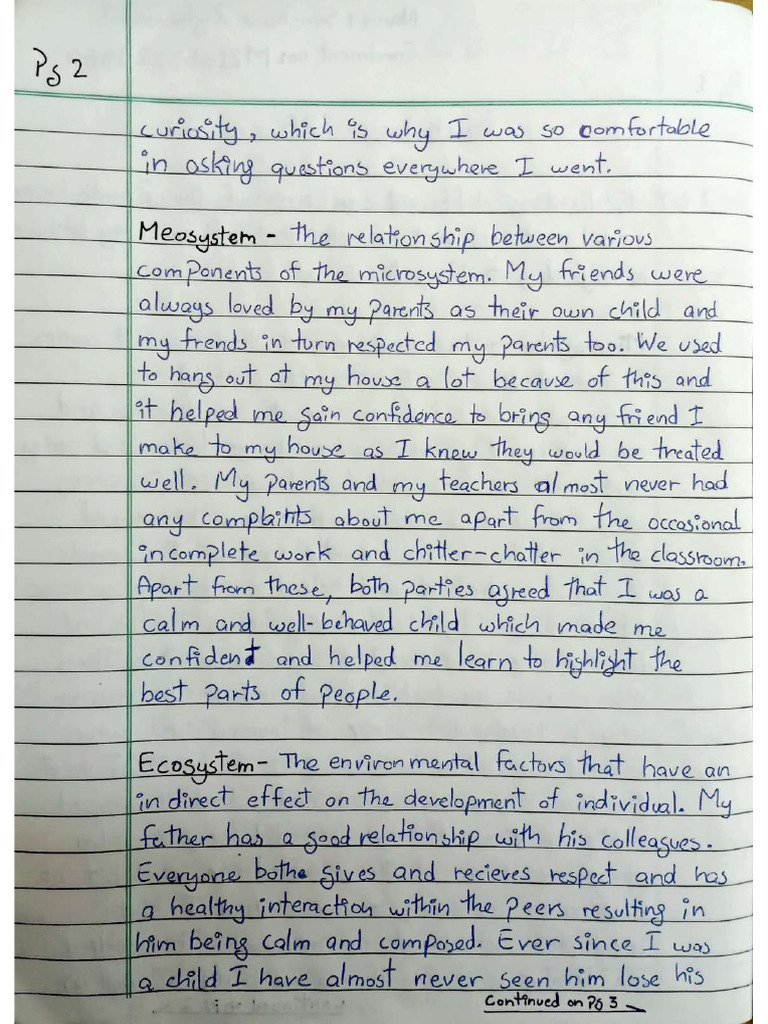 Pg 2
curiosity, which is why I was so comfortable
in asking questions everywhere I went.
Meosystem - The relationship between various
components of the microsystem. My friends were
always loved by my parents as their own child and
my frends in turn respected my parents too. We used
to hang out at my house a lot because of this and
it helped me gain confidence to bring any friend I
make to my house as I knew they would be treated
well. My parents and my teachers almost never had
any complaints about me apart from the occasional
incomplete work and chitter-chatter in the classroom.
Apart from these, both parties agreed that I was a
calm and well-behaved child which made me
confident and helped me learn to highlight the
best parts of people.
Ecosystem - The environmental factors that have an
indirect effect on the development of individual. My
father has a good relationship with his colleagues.
Everyone bothe gives and recieves respect and has
a healthy interaction within the peers resulting in
him being calm and composed. Ever since I was
a child I have almost never seen him lose his
Continued on Pg 3